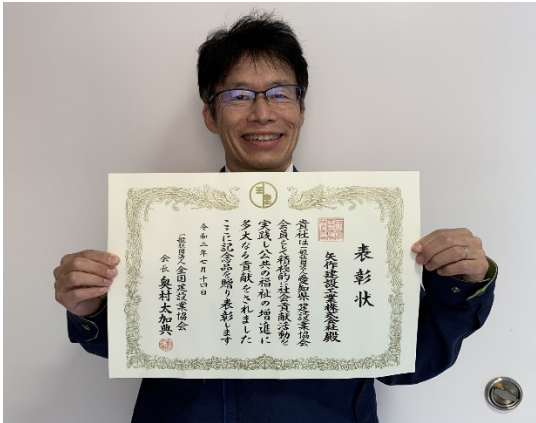 表彰状
矢作建設工業株式会社殿
貴社は一般社団法人愛知県建設業協会
会員として積極的に社会貢献活動を
実践し公共の福祉の増進に
多大なる貢献をされました
ここに記念品を贈り表彰します
令和二年七月十四日
一般社団法人全国建設業協会
会長 奥村太加典